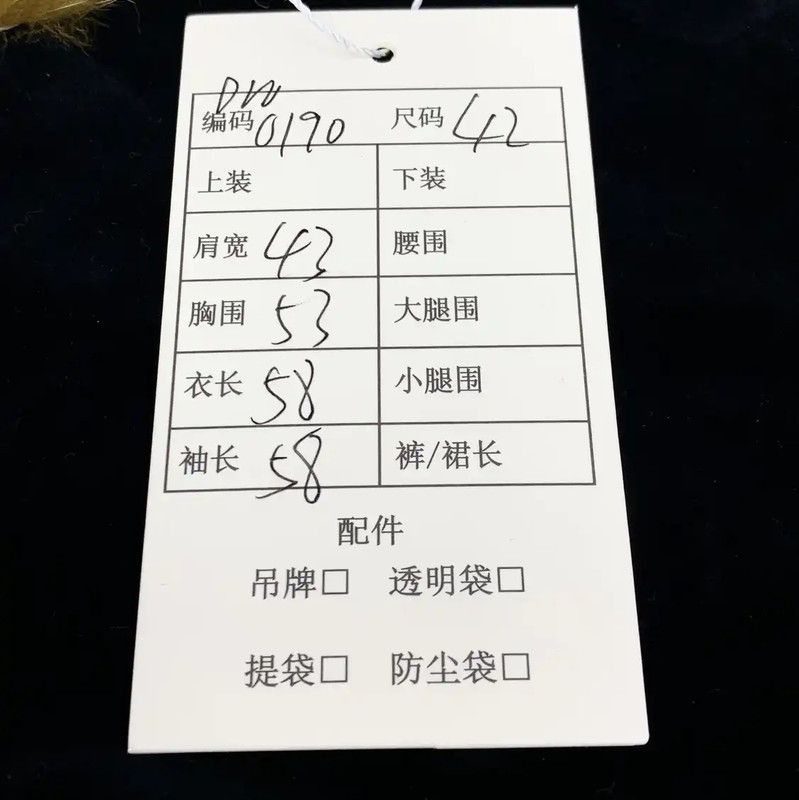 DW
编码 0190 尺码 42
上装 下装
肩宽 43 腰围
胸围 53 大腿围
衣长 58 小腿围
袖长 58 裤/裙长
配件
吊牌□ 透明袋□
提袋□ 防尘袋□